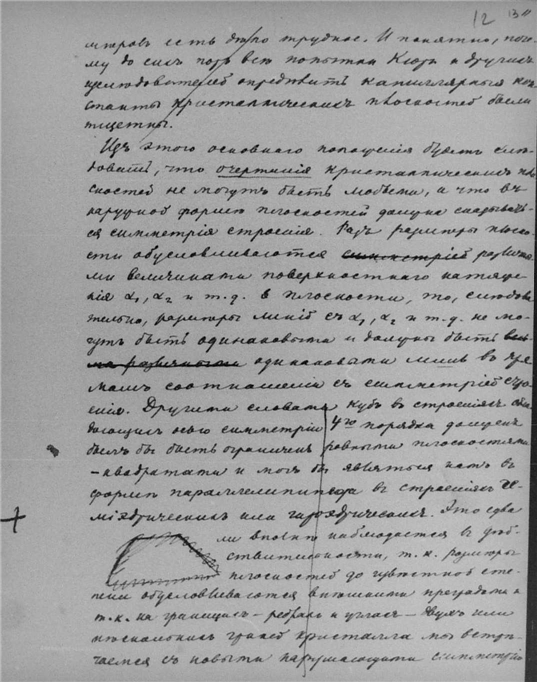 12 13
метровъ есть дѣло трудное. И понятно, поче-
му до сихъ поръ всѣ попытки Кюри и другихъ
изслѣдователей опредѣлить капиллярныя кон-
станты кристаллическихъ плоскостей были
тщетны.
Изъ этого основного положенія будетъ слѣ-
довать, что очертанія кристаллическихъ пло-
скостей не могутъ быть любыми, и что въ
наружной формѣ плоскостей должна сказывать-
ся симметрія строенія. Разъ размѣры плоско-
сти обусловливаются симметріей различны-
ми величинами поверхностнаго натяже-
нія α₁, α₂ и т.д. в плоскости, то, слѣдова-
тельно, размѣры линій съ α₁, α₂ и т.д. не мо-
гутъ быть одинаковыми и должны быть
одинаковыми лишь въ пря-
момъ соотношеніи съ симметріей стро-
енія. Другими словами кубъ въ строеніяхъ
дающихъ осью симметріи 4го порядка долженъ
былъ бы быть ограниченъ ровными плоскостями
– квадратами и могъ бы являться намъ въ
формѣ параллелипипеда въ строеніяхъ ге-
міэдрическихъ или гироэдрическихъ. Это едва
ли вполнѣ наблюдается въ дѣй-
ствительности, т.к. размѣры
плоскостей до извѣстной сте-
пени обусловливаются внѣшними
т.к. на границахъ – ребрахъ и углахъ – двухъ или
нѣсколькихъ граней кристалла мы встрѣ-
чаемся съ новыми нарушающими симметрію